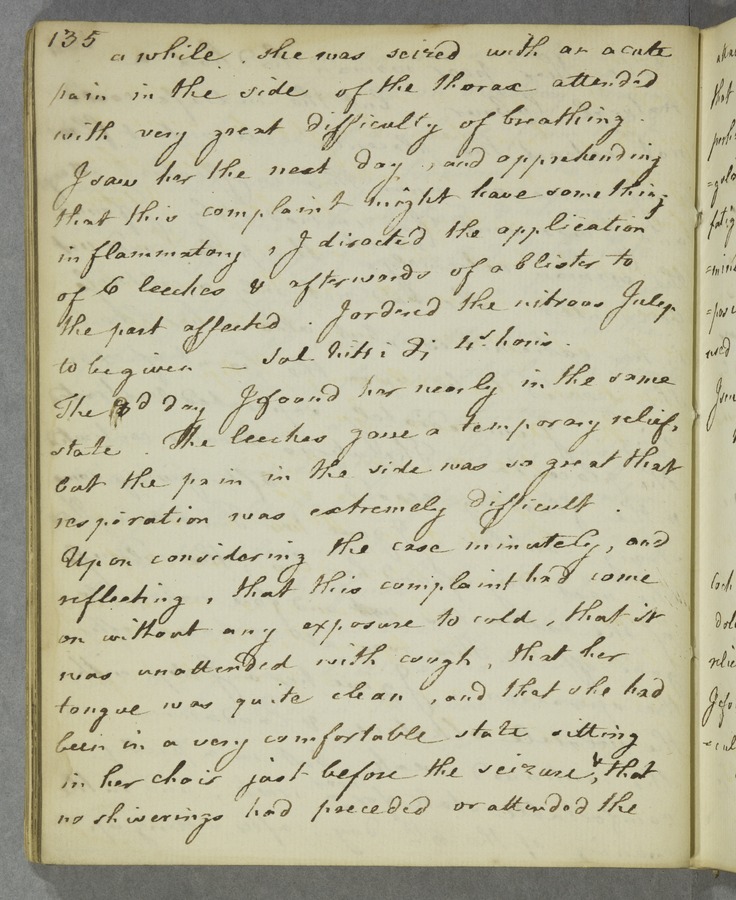 135
a while. she was seized with an acute
pain in the side of the thorax attended
with very great difficulty of breathing.
I saw her the next day, and apprehending
that this complaint might have something
inflammatory, I directed the application
of 6 leeches & afterwards of a blister to
the part affected. I ordered the nitrous Julep
to be given — Sal. Nitri 4.s horis.
The 3d day I found her nearly in the same
state. The leeches gave a temporary relief,
but the pain in the side was so great that
respiration was extremely difficult.
Upon considering the case minutely, and
reflecting, that this complaint had come
on without any exposure to cold, that it
was unattended with cough, that her
tongue was quite clean, and that she had
been in a very comfortable state sitting
in her chair just before the seizure, & that
no shiverings had preceded or attended the